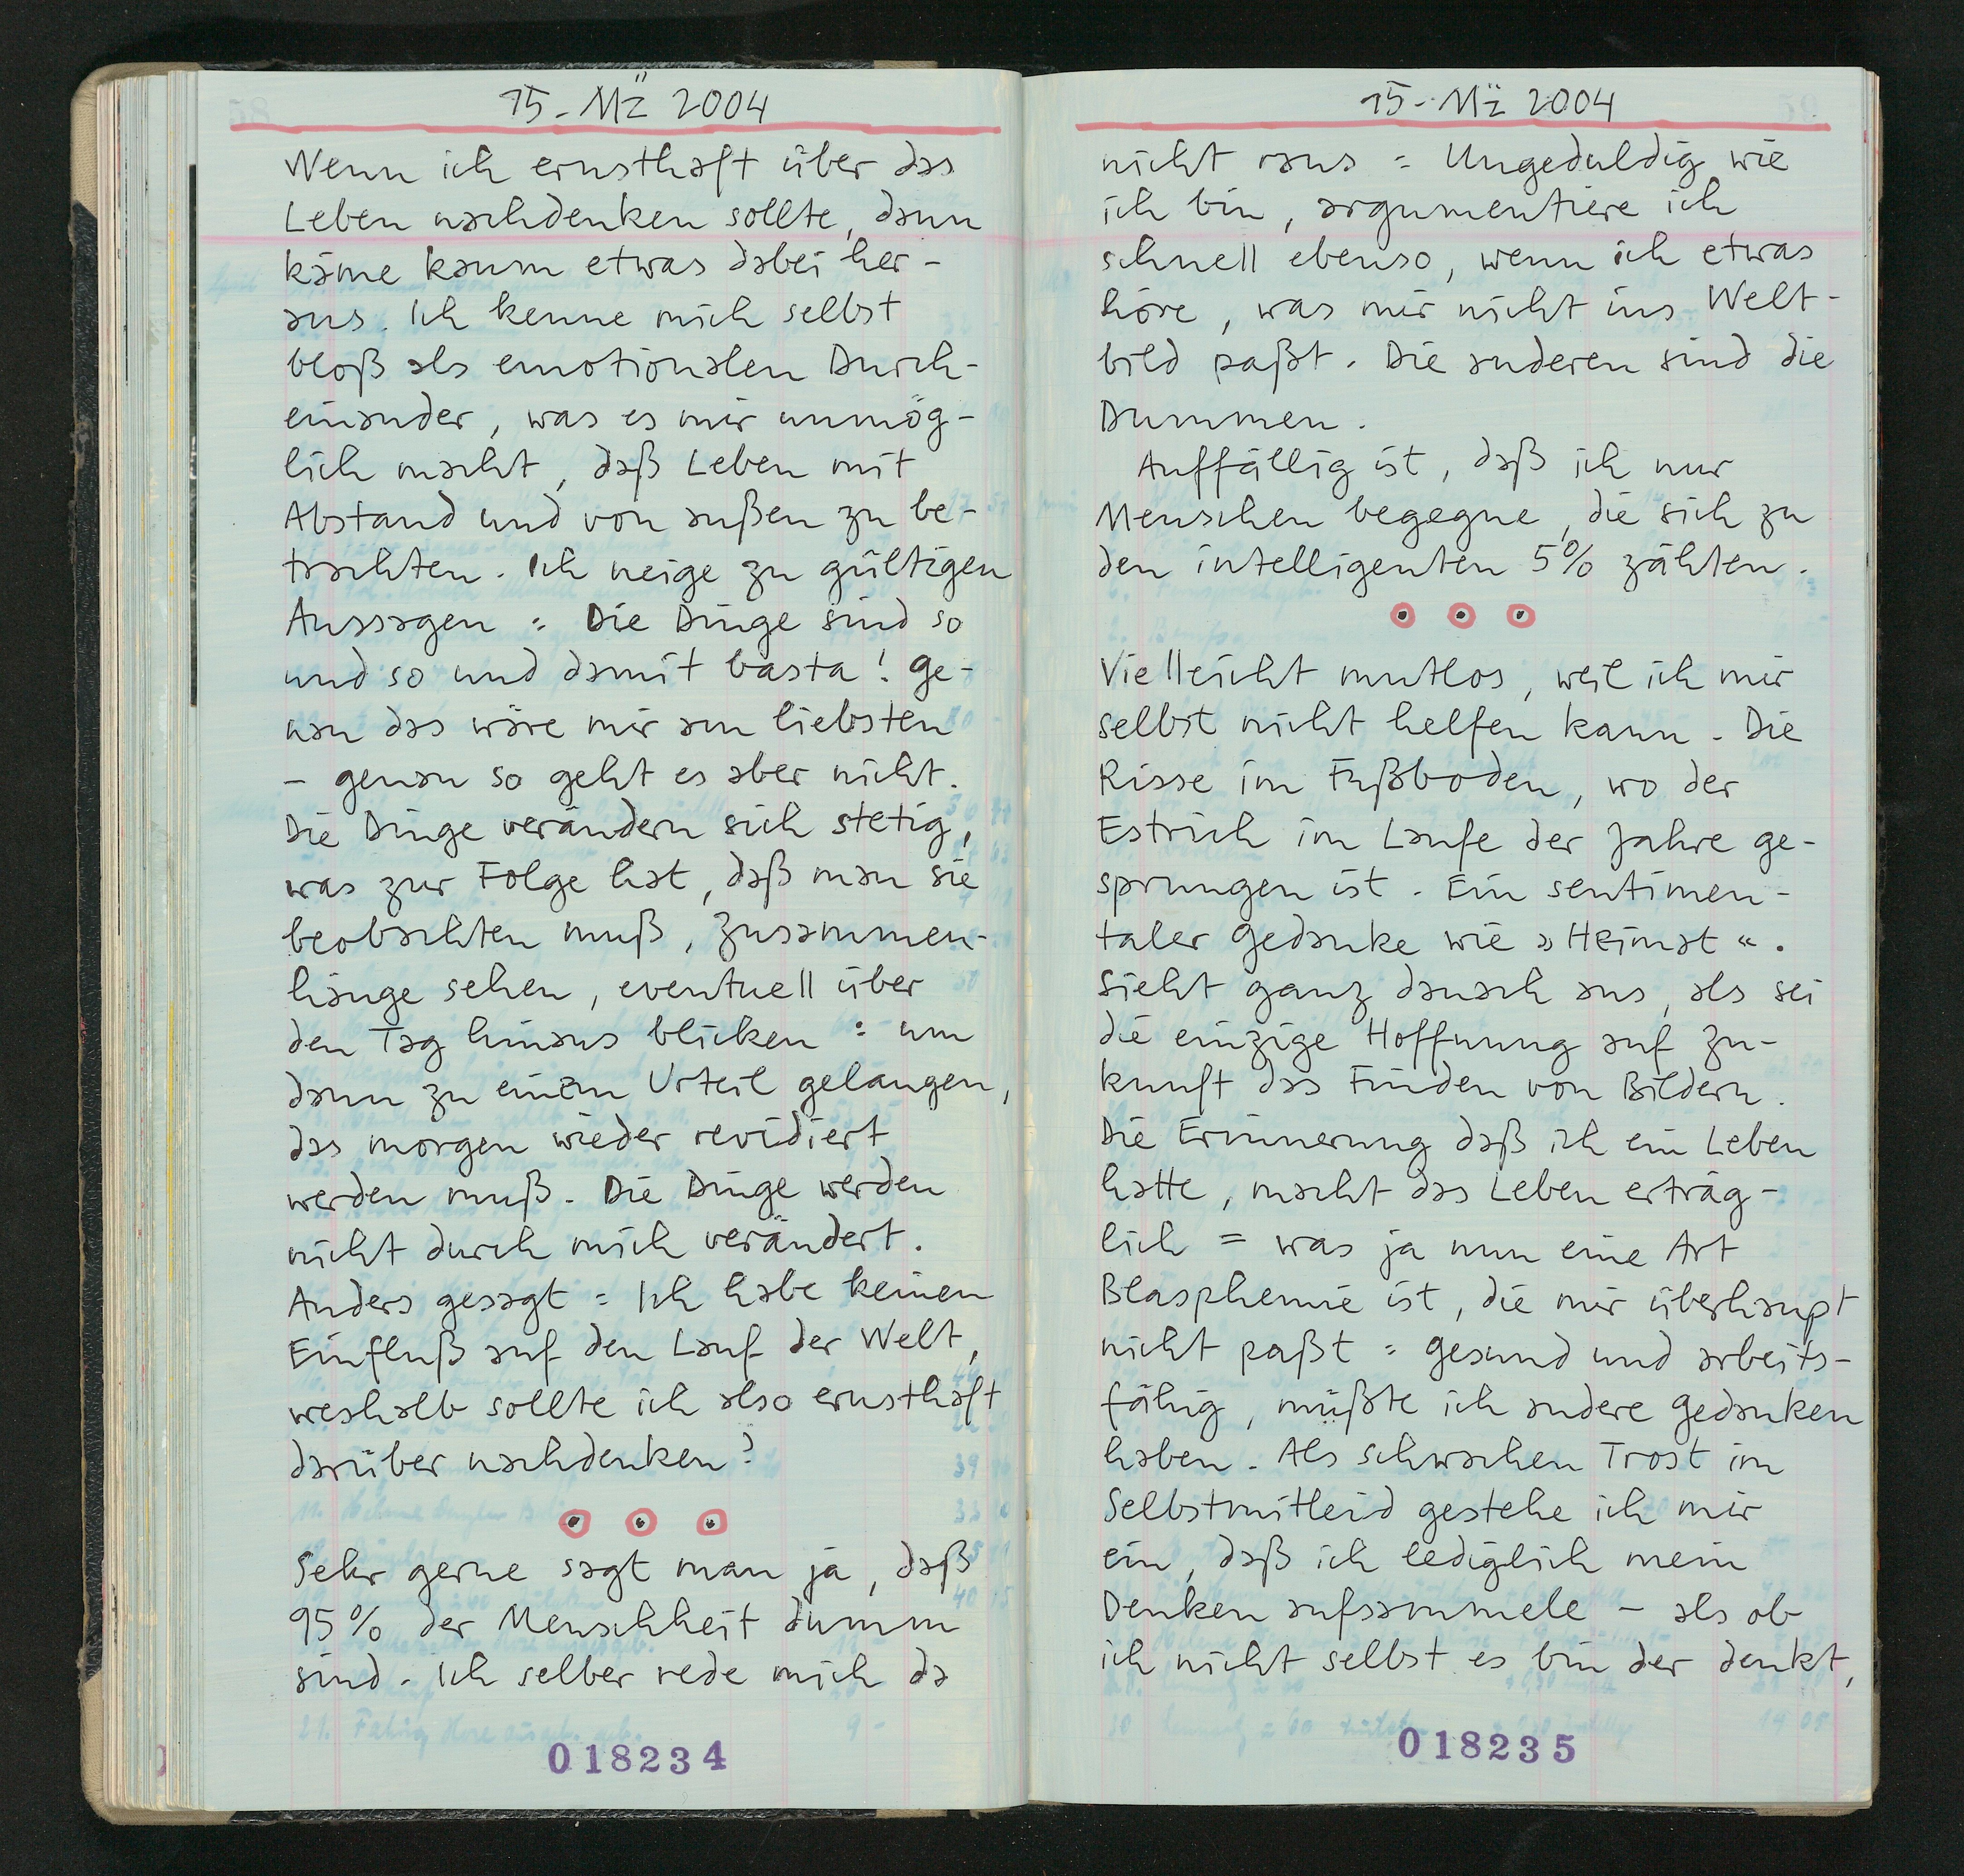 15-Mä 2004
Wenn ich ernsthaft über das
Leben nachdenken sollte, dann
käme kaum etwas dabei her-
aus. Ich kenne mich selbst
bloß als emotionalen Durch-
einander, was es mir unmög-
lich macht, daß Leben mit
Abstand und von außen zu be-
trachten. Ich neige zu gültigen
Aussagen: Die Dinge sind so
und so und damit basta! Ge-
nau das wäre mir am liebsten
– genau so geht es aber nicht.
Die Dinge verändern sich stetig,
was zur Folge hat, daß man sie
beobachten muß, Zusammen-
hänge sehen, eventuell über
den Tag hinaus blicken: um
dann zu einem Urteil gelangen,
das morgen wieder revidiert
werden muß. Die Dinge werden
nicht durch mich verändert.
Anders gesagt: Ich habe keinen
Einfluß auf den Lauf der Welt,
weshalb sollte ich also ernsthaft
darüber nachdenken?
Sehr gerne sagt man ja, daß
95% der Menschheit dumm
sind. Ich selber rede mich da
018234
15-Mä 2004
nicht raus: Ungeduldig wie
ich bin, argumentiere ich
schnell ebenso, wenn ich etwas
höre, was mir nicht ins Welt-
bild paßt. Die anderen sind die
Dummen.
Auffällig ist, daß ich nur
Menschen begegne, die sich zu
den intelligenten 5% zählten.
Vielleicht mutlos, weil ich mir
selbst nicht helfen kann. Die
Risse im Fußboden, wo der
Estrich im Laufe der Jahre ge-
sprungen ist. Ein sentimen-
taler Gedanke wie »Heimat«.
Sieht ganz danach aus, als sei
die einzige Hoffnung auf Zu-
kunft das Finden von Bildern.
Die Erinnerung daß ich ein Leben
hatte, macht das Leben erträg-
lich = was ja nun eine Art
Blasphemie ist, die mir überhaupt
nicht paßt: gesund und arbeits-
fähig, müßte ich andere Gedanken
haben. Als schwachen Trost im
Selbstmitleid gestehe ich mir
ein, daß ich lediglich mein
Denken aufsammele – als ob
ich nicht selbst es bin der denkt,
018235